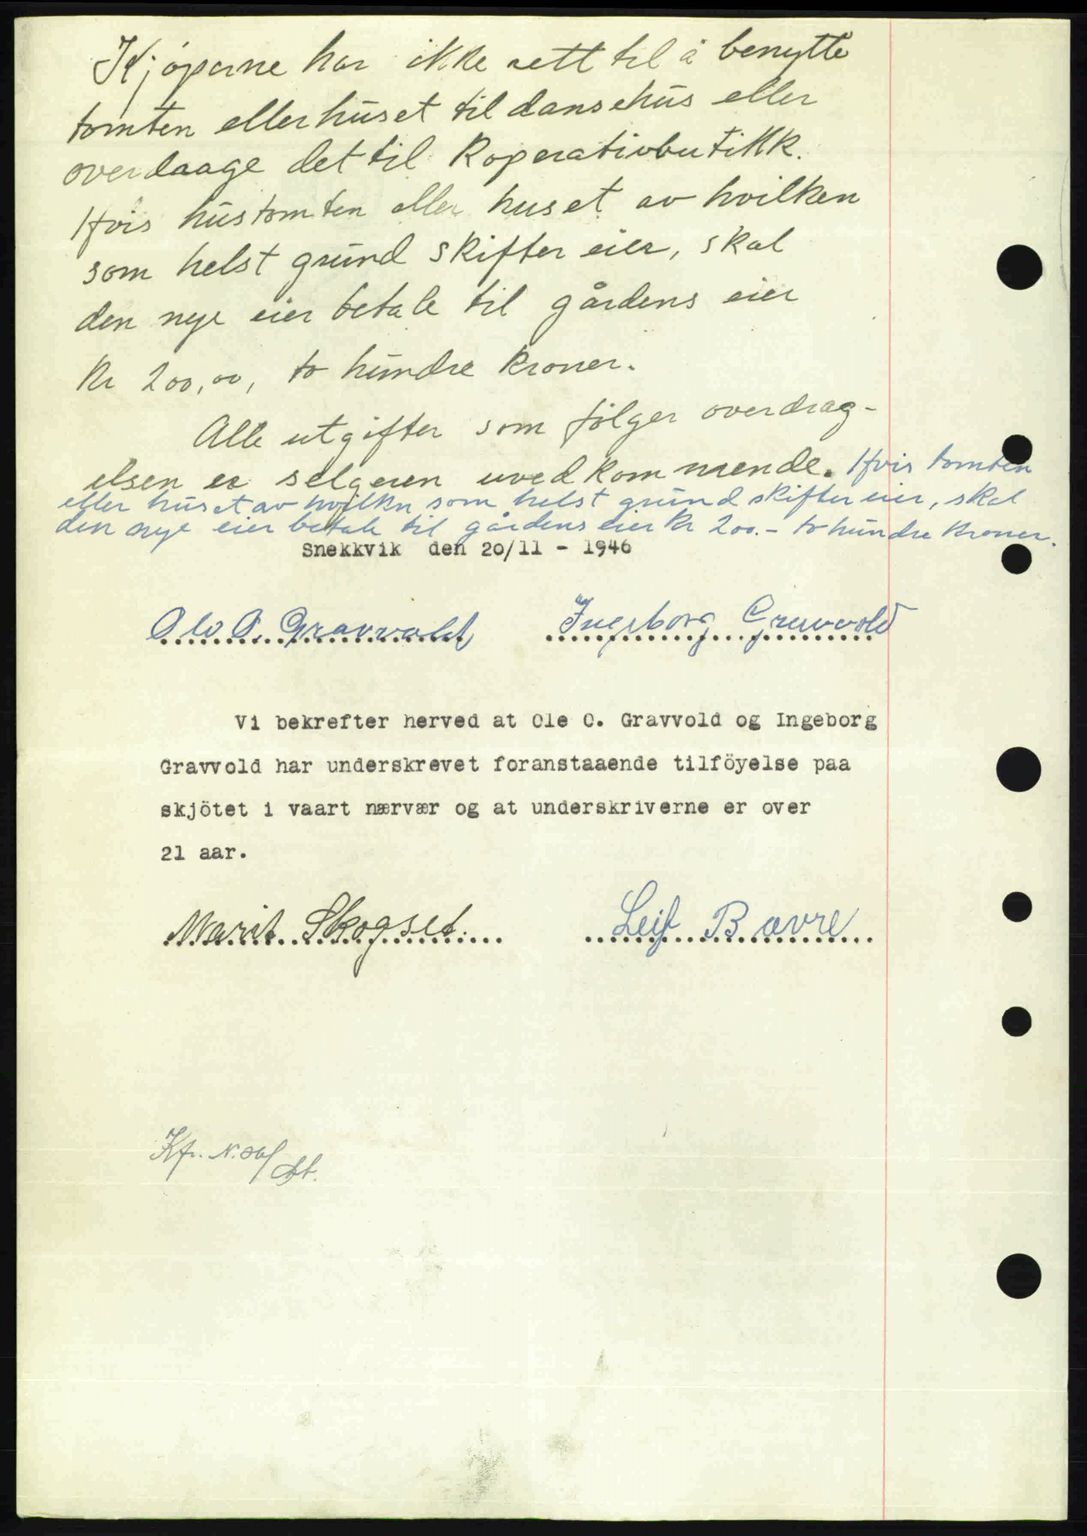 Kjøperne har ikke rett til å benytte
tomten eller huset til dansehus eller
overdaage det til Koperativbutikk.
Hvis hustomten eller huset av hvilken
som helst grund skifter eier, skal
den nye eier betale til gårdens eier
Kr 200,00, to hundre kroner.
Alle utgifter som følger overdrag-
elsen er selgeren uvedkommende. Hvis tomten
eller huset av hvilkn som helst grund skifter eier, skal
den nye eier betale til gårdens eier Kr 200.- to hundre kroner.
Snekkvik den 20/11 - 1946
Ole O. Gravvold Ingeborg Gravvold
Vi bekrefter herved at Ole O. Gravvold og Ingeborg
Gravvold har underskrevet foranstaaende tilföyelse paa
skjötet i vaart nærvær og at underskriverne er over
21 aar.
Marit Skogset. Leif Bævre
Kfr.